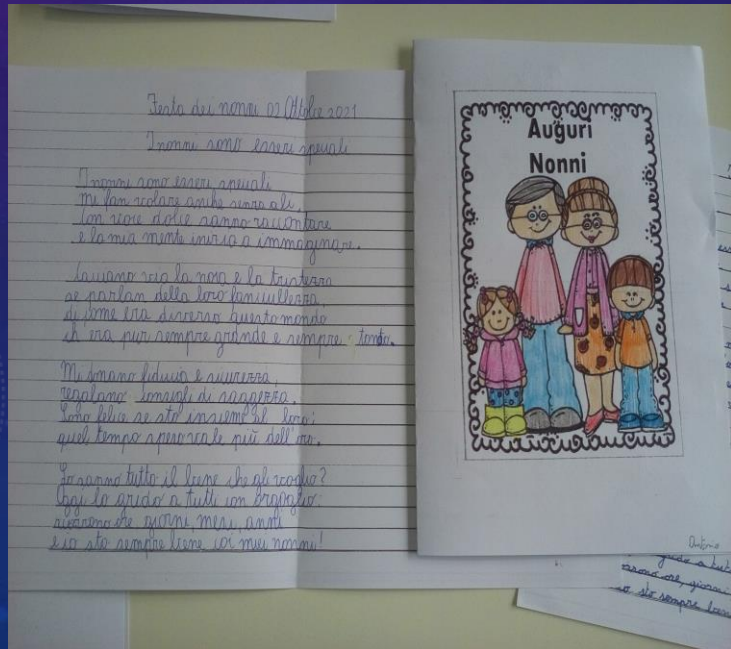 Festa dei nonni 02 Ottobre 2021
I nonni sono esseri speciali
I nonni sono esseri speciali
mi fan volare anche senza ali,
con voce dolce sanno raccontare
e la mia mente inizia a immaginare.
Cacciano via la noia e la tristezza
se parlan della loro fanciullezza,
di come era diverso questo mondo
ch era pur sempre grande e sempre tondo.
Mi donano fiducia e sicurezza,
regalano consigli di saggezza.
Sono felice se sto insieme a loro:
quel tempo speso vale più dell'oro.
Lo sanno tutto il bene che gli voglio?
Oggi lo grido a tutti con orgoglio:
ore giorni, mesi, anni
e io sto sempre bene coi miei nonni!
Auguri
Nonni
Antonio
grido a tut
ore, giorni
io sto sempre bene